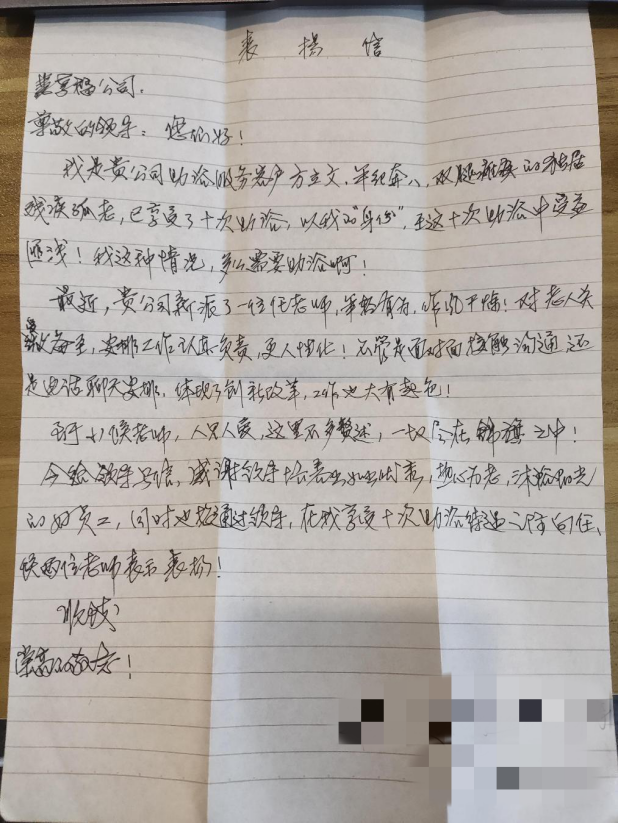 表扬信
公司.
尊敬的领导：您们好！
我是贵公司助浴服务客户方立文.年纪奔八,双腿的独居
残疾孤老,已享受了十次助浴,以我的“身份”,在这十次助浴中受益
匪浅！我这种情况,多么需要助浴啊！
最近,贵公司新派了一位任老师,年轻有为,作风干练！对老人关
怀备至,安排工作认真负责,更人性化！不管是面对面接触沟通还
是电话聊天安排,体现了创新改革,工作也大有起色！
至于小侯老师,人见人爱,这里不多赘述,一切尽在锦旗之中！
今给领导写信,感谢领导培养出如此出众,热心为老,沐输阳光
的好员工,同时也想通过领导,在我享受十次助浴待遇之际向任、
侯两位老师表示表扬！
顺致
！